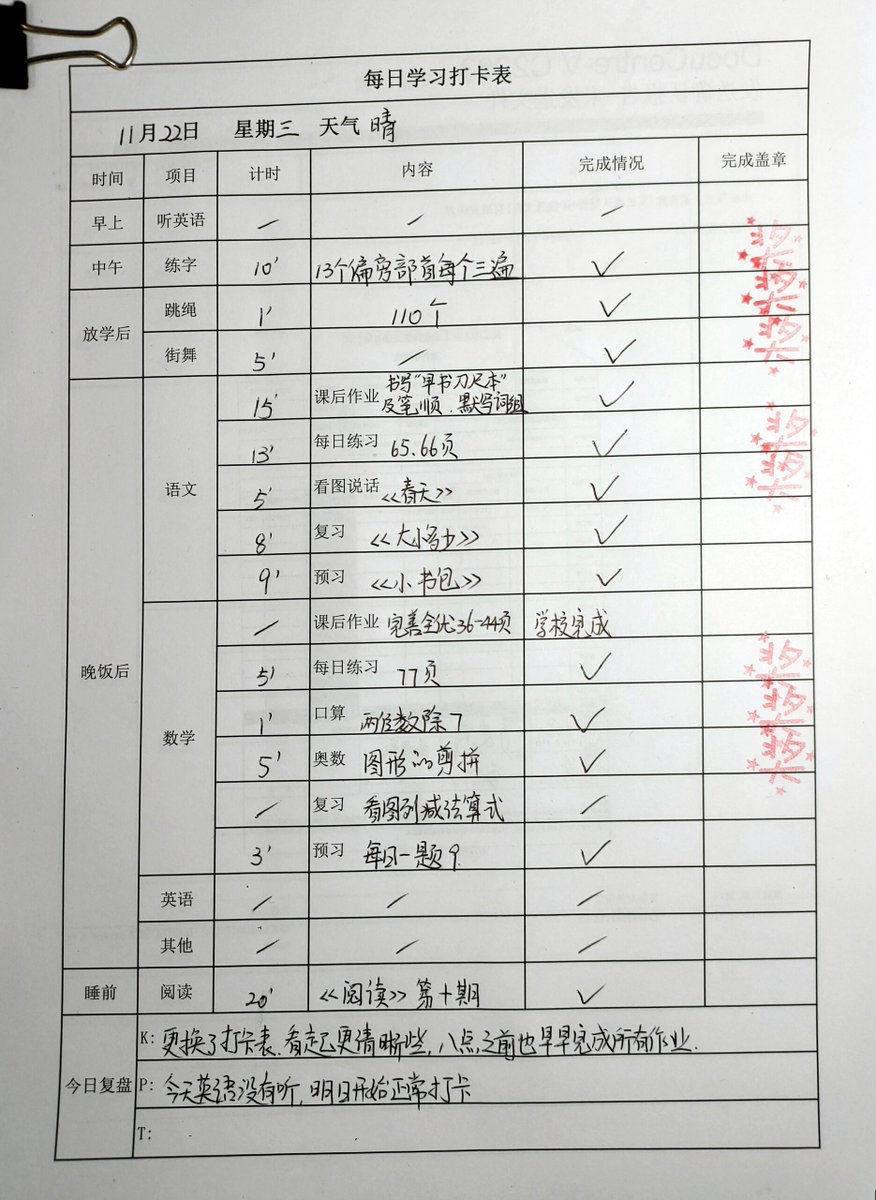 每日学习打卡表
11月22日 星期三 天气 晴
时间 项目 计时 内容 完成情况 完成盖章
早上 听英语 / / /
中午 练字 10' 13个偏旁部首每个三遍 ✓
放学后 跳绳 1' 110个 ✓
街舞 5' / ✓
晚饭后 语文 15' 课后作业 书写"早书刀尺本"
及笔顺.默写词组 ✓
13' 每日练习 65.66页 ✓
5' 看图说话 <<春天>> ✓
8' 复习 <<大小多少>> ✓
9' 预习 <<小书包>> ✓
数学 / 课后作业 完善全优36-44页 学校完成
5' 每日练习 77页 ✓
1' 口算 两位数除7 ✓
5' 奥数 图形的剪拼 ✓
/ 复习 看图列减法算式 /
3' 预习 每日一题9. ✓
英语 / / /
其他 / / /
睡前 阅读 20' <<阅读>>第十期 ✓
今日复盘 K: 更换了打卡表.看起来更清晰些,八点之前也早早完成所有作业.
P: 今天英语没有听,明日开始正常打卡
T:
奖
奖
奖
奖
奖
奖
奖
奖